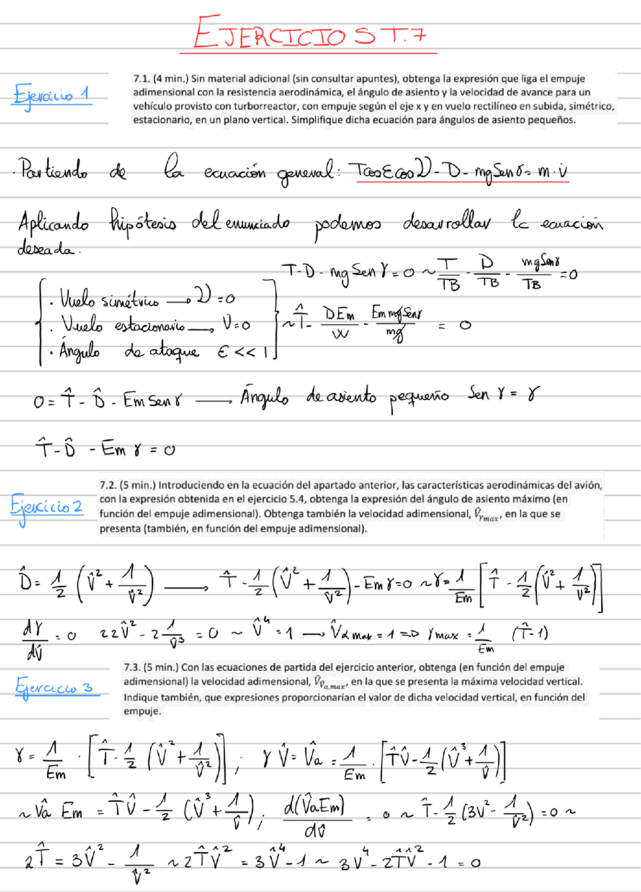 EJERCICIOS T.7
Ejercicio 1
7.1. (4 min.) Sin material adicional (sin consultar apuntes), obtenga la expresión que liga el empuje
adimensional con la resistencia aerodinámica, el ángulo de asiento y la velocidad de avance para un
vehículo provisto con turborreactor, con empuje según el eje x y en vuelo rectilíneo en subida, simétrico,
estacionario, en un plano vertical. Simplifique dicha ecuación para ángulos de asiento pequeños.
· Partiendo de la ecuación general: TcosƐcosν - D - mg Senγ = m·v̇
Aplicando hipótesis del enunciado podemos desarrollar la ecuación
deseada.
T - D - mg Sen γ = 0 ~ T/TB - D/TB - mgSenγ/TB = 0
· Vuelo simétrico → ν = 0
· Vuelo estacionario → v̇ = 0
· Ángulo de ataque Ɛ << 1
~ T̂ - DEm/W - Em mg Senγ/mg = 0
0 = T̂ - D̂ - Em Sen γ → Ángulo de asiento pequeño Sen γ = γ
T̂ - D̂ - Em γ = 0
7.2. (5 min.) Introduciendo en la ecuación del apartado anterior, las características aerodinámicas del avión,
con la expresión obtenida en el ejercicio 5.4, obtenga la expresión del ángulo de asiento máximo (en
función del empuje adimensional). Obtenga también la velocidad adimensional, V̂γmax, en la que se
presenta (también, en función del empuje adimensional).
Ejercicio 2
D̂ = 1/2 (V̂² + 1/V̂²) → T̂ - 1/2 (V̂² + 1/V̂²) - Em γ = 0 ~ γ = 1/Em [T̂ - 1/2 (V̂² + 1/V̂²)]
dγ/dv̂ = 0 22V̂² - 2 1/V̂³ = 0 ~ V̂⁴ = 1 → V̂αmax = 1 => γmax = 1/Em (T̂-1)
7.3. (5 min.) Con las ecuaciones de partida del ejercicio anterior, obtenga (en función del empuje
adimensional) la velocidad adimensional, V̂Va,max, en la que se presenta la máxima velocidad vertical.
Indique también, que expresiones proporcionarían el valor de dicha velocidad vertical, en función del
empuje.
Ejercicio 3
γ = 1/Em · [T̂ - 1/2 (V̂² + 1/V̂²)]; γ V̂ = V̂a = 1/Em · [T̂V̂ - 1/2 (V̂³ + 1/V̂)]
~ V̂a Em = T̂V̂ - 1/2 (V̂³ + 1/V̂); d(V̂aEm)/dv̂ = 0 ~ T̂ - 1/2 (3V² - 1/V̂²) = 0 ~
2T̂ = 3V̂² - 1/V̂² ~ 2T̂V̂² = 3V̂⁴ - 1 ~ 3V⁴ - 2T̂V̂² - 1 = 0